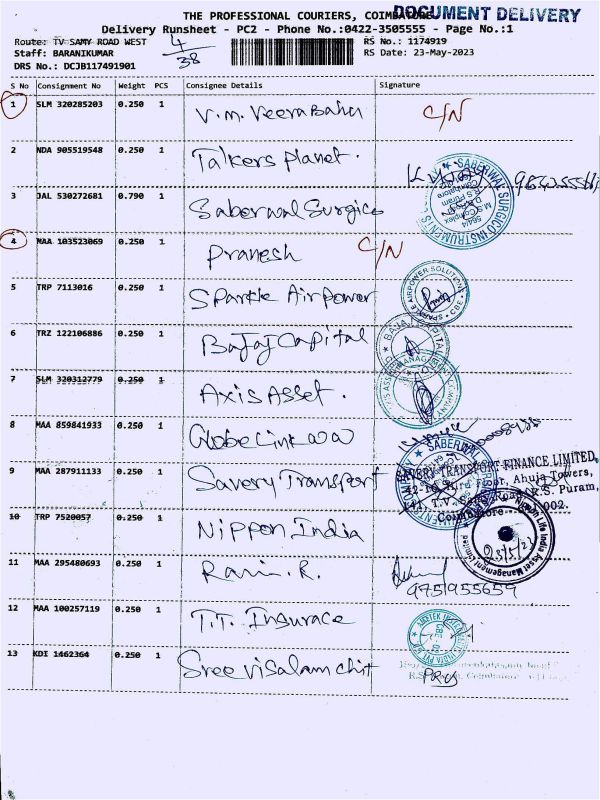 THE PROFESSIONAL COURIERS, COIMBATORE
DOCUMENT DELIVERY
Delivery Runsheet - PC2 - Phone No.:0422-3505555 - Page No.:1
Route: TV SAMY ROAD WEST
4/38
RS No.: 1174919
Staff: BARANIKUMAR
RS Date: 23-May-2023
DRS No.: DCJB117491901
S No Consignment No Weight PCS Consignee Details Signature
1 SLM 320285203 0.250 1 V.M. Veerabahu C/N
2 NDA 905519548 0.250 1 Talkers Planet.
3 JAL 530272681 0.790 1 Saberwal Surgico
SABERWAL SURGICO INSTRUMENTS
4 MAA 103523069 0.250 1 Pranesh C/N
5 TRP 7113016 0.250 1 Sparkle Airpower
SPARKLE AIRPOWER SOLUTIONS CBE
6 TRZ 122106886 0.250 1 Bajaj Capital
BAJAJ CAPITAL
7 SLM 320312779 0.250 1 Axis Asset.
AXIS ASSET MANAGEMENT COMPANY
8 MAA 859841933 0.250 1 Globe Link WW
9 MAA 287911133 0.250 1 Savery Transport
SAVERY TRANSPORT FINANCE LIMITED,
Floor, Ahuja Towers,
T.V. Samy Road, R.S. Puram,
Coimbatore 002.
10 TRP 7520057 0.250 1 Nippon India
Nippon Life India Asset Management Limited
23/5/23
11 MAA 295480693 0.250 1 Ravi. R.
9751955659
12 MAA 100257119 0.250 1 T.T. Insurace
13 KDI 1462364 0.250 1 Sree Visalam Chit